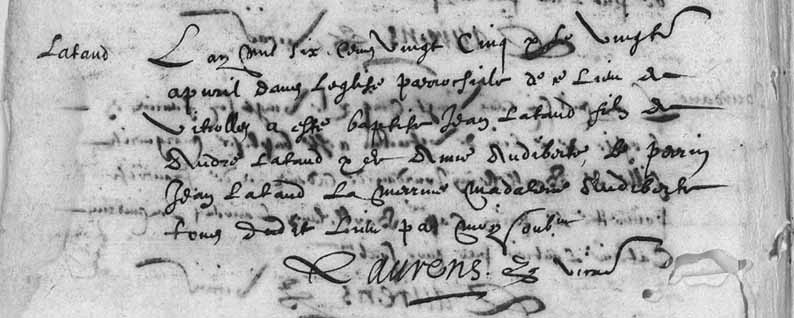 Lataud
L an mil six cens vingt cinq & le vingt
apvril dans leglise parrochialle de ce lieu de
Vitrolles a este baptise Jean Lataud filz de
Andre Lataud & de Anne Audiberte, le perrin
Jean Lataud La merrine Madalene Audiberte
tous dudit lieu par moy soubne
Laurens